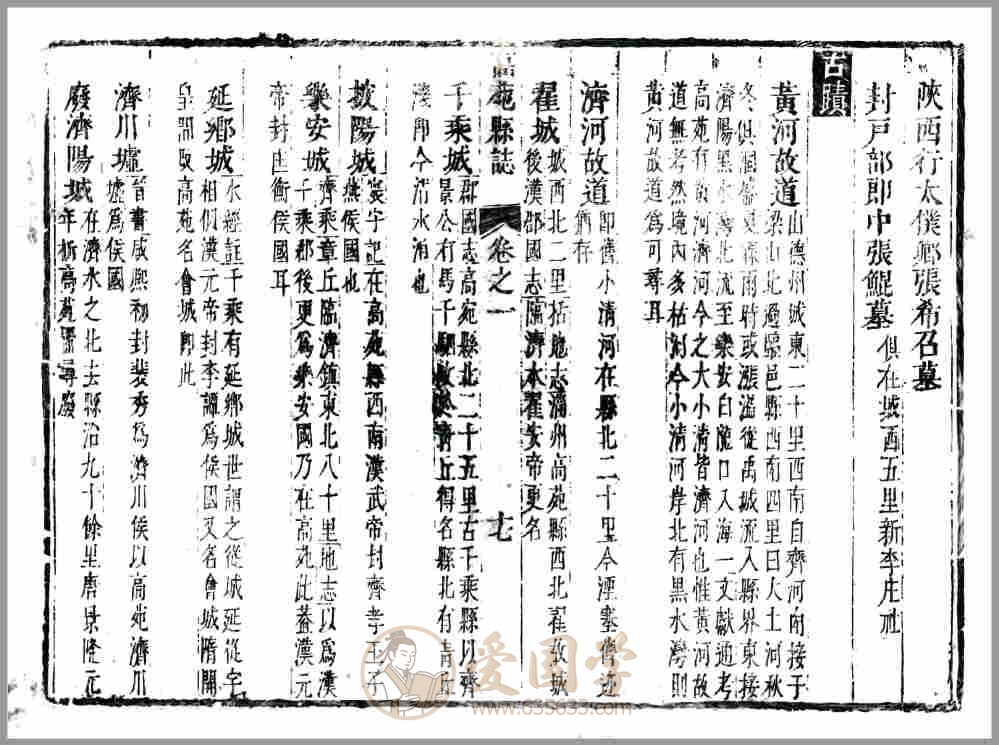 陝西行太僕卿張希召墓
封戶部郎中張鯤墓 俱在城西五里新李庄社
古蹟
黃河故道 山德州城東二十里西南自齊河南接于
梁山北過臨邑縣西南四里曰大土河秋
冬俱涸霖雨時或漲溢從禹城流入縣界東接
濟陽黑水灣北流至樂安白龍口入海一文獻通考
高苑有黃河濟河今之大小清皆濟河也惟黃河故
道無考然境內多枯河今小清河岸北有黑水灣則
黃河故道為可尋耳
濟河故道 即舊小清河在縣北二十里今湮塞舊迹
猶存
翟城 城西北二里括地志淄州高苑縣西北翟故城
後漢郡國志臨濟本翟安帝更名
苑縣誌 卷之一 十七
千乘城 郡國志高宛縣北二十五里古千乘縣以齊
景公有馬千駟畋於青丘得名縣北有青丘
濼即今清水泊也
被陽城 寰宇記在高苑縣西南漢武帝封齊孝王子
燕侯國也
樂安城 齊乘章丘臨濟鎮東北八十里地志以為漢
千乘郡後更為樂安國乃在高苑此蓋漢元
帝封匡衡侯國耳
延鄉城 水經註千乘有延鄉城世謂之從城延從字
相似漢元帝封李譚為侯國又名會城隋開
皇間改高苑名會城即此
濟川墟 晉書咸熙初封裴秀為濟川侯以高苑濟川
墟為侯國
廢濟陽城 在濟水之北去縣治九十餘里唐景隆元
年析高苑置尋廢
愛國學
www.635633.com